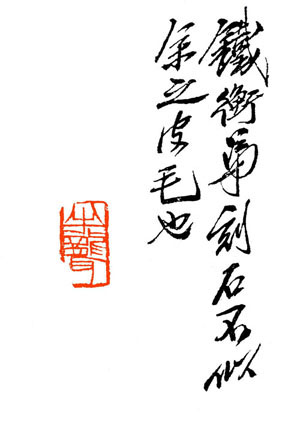 鐵衡弟刻石不似
余之皮毛也
半聾